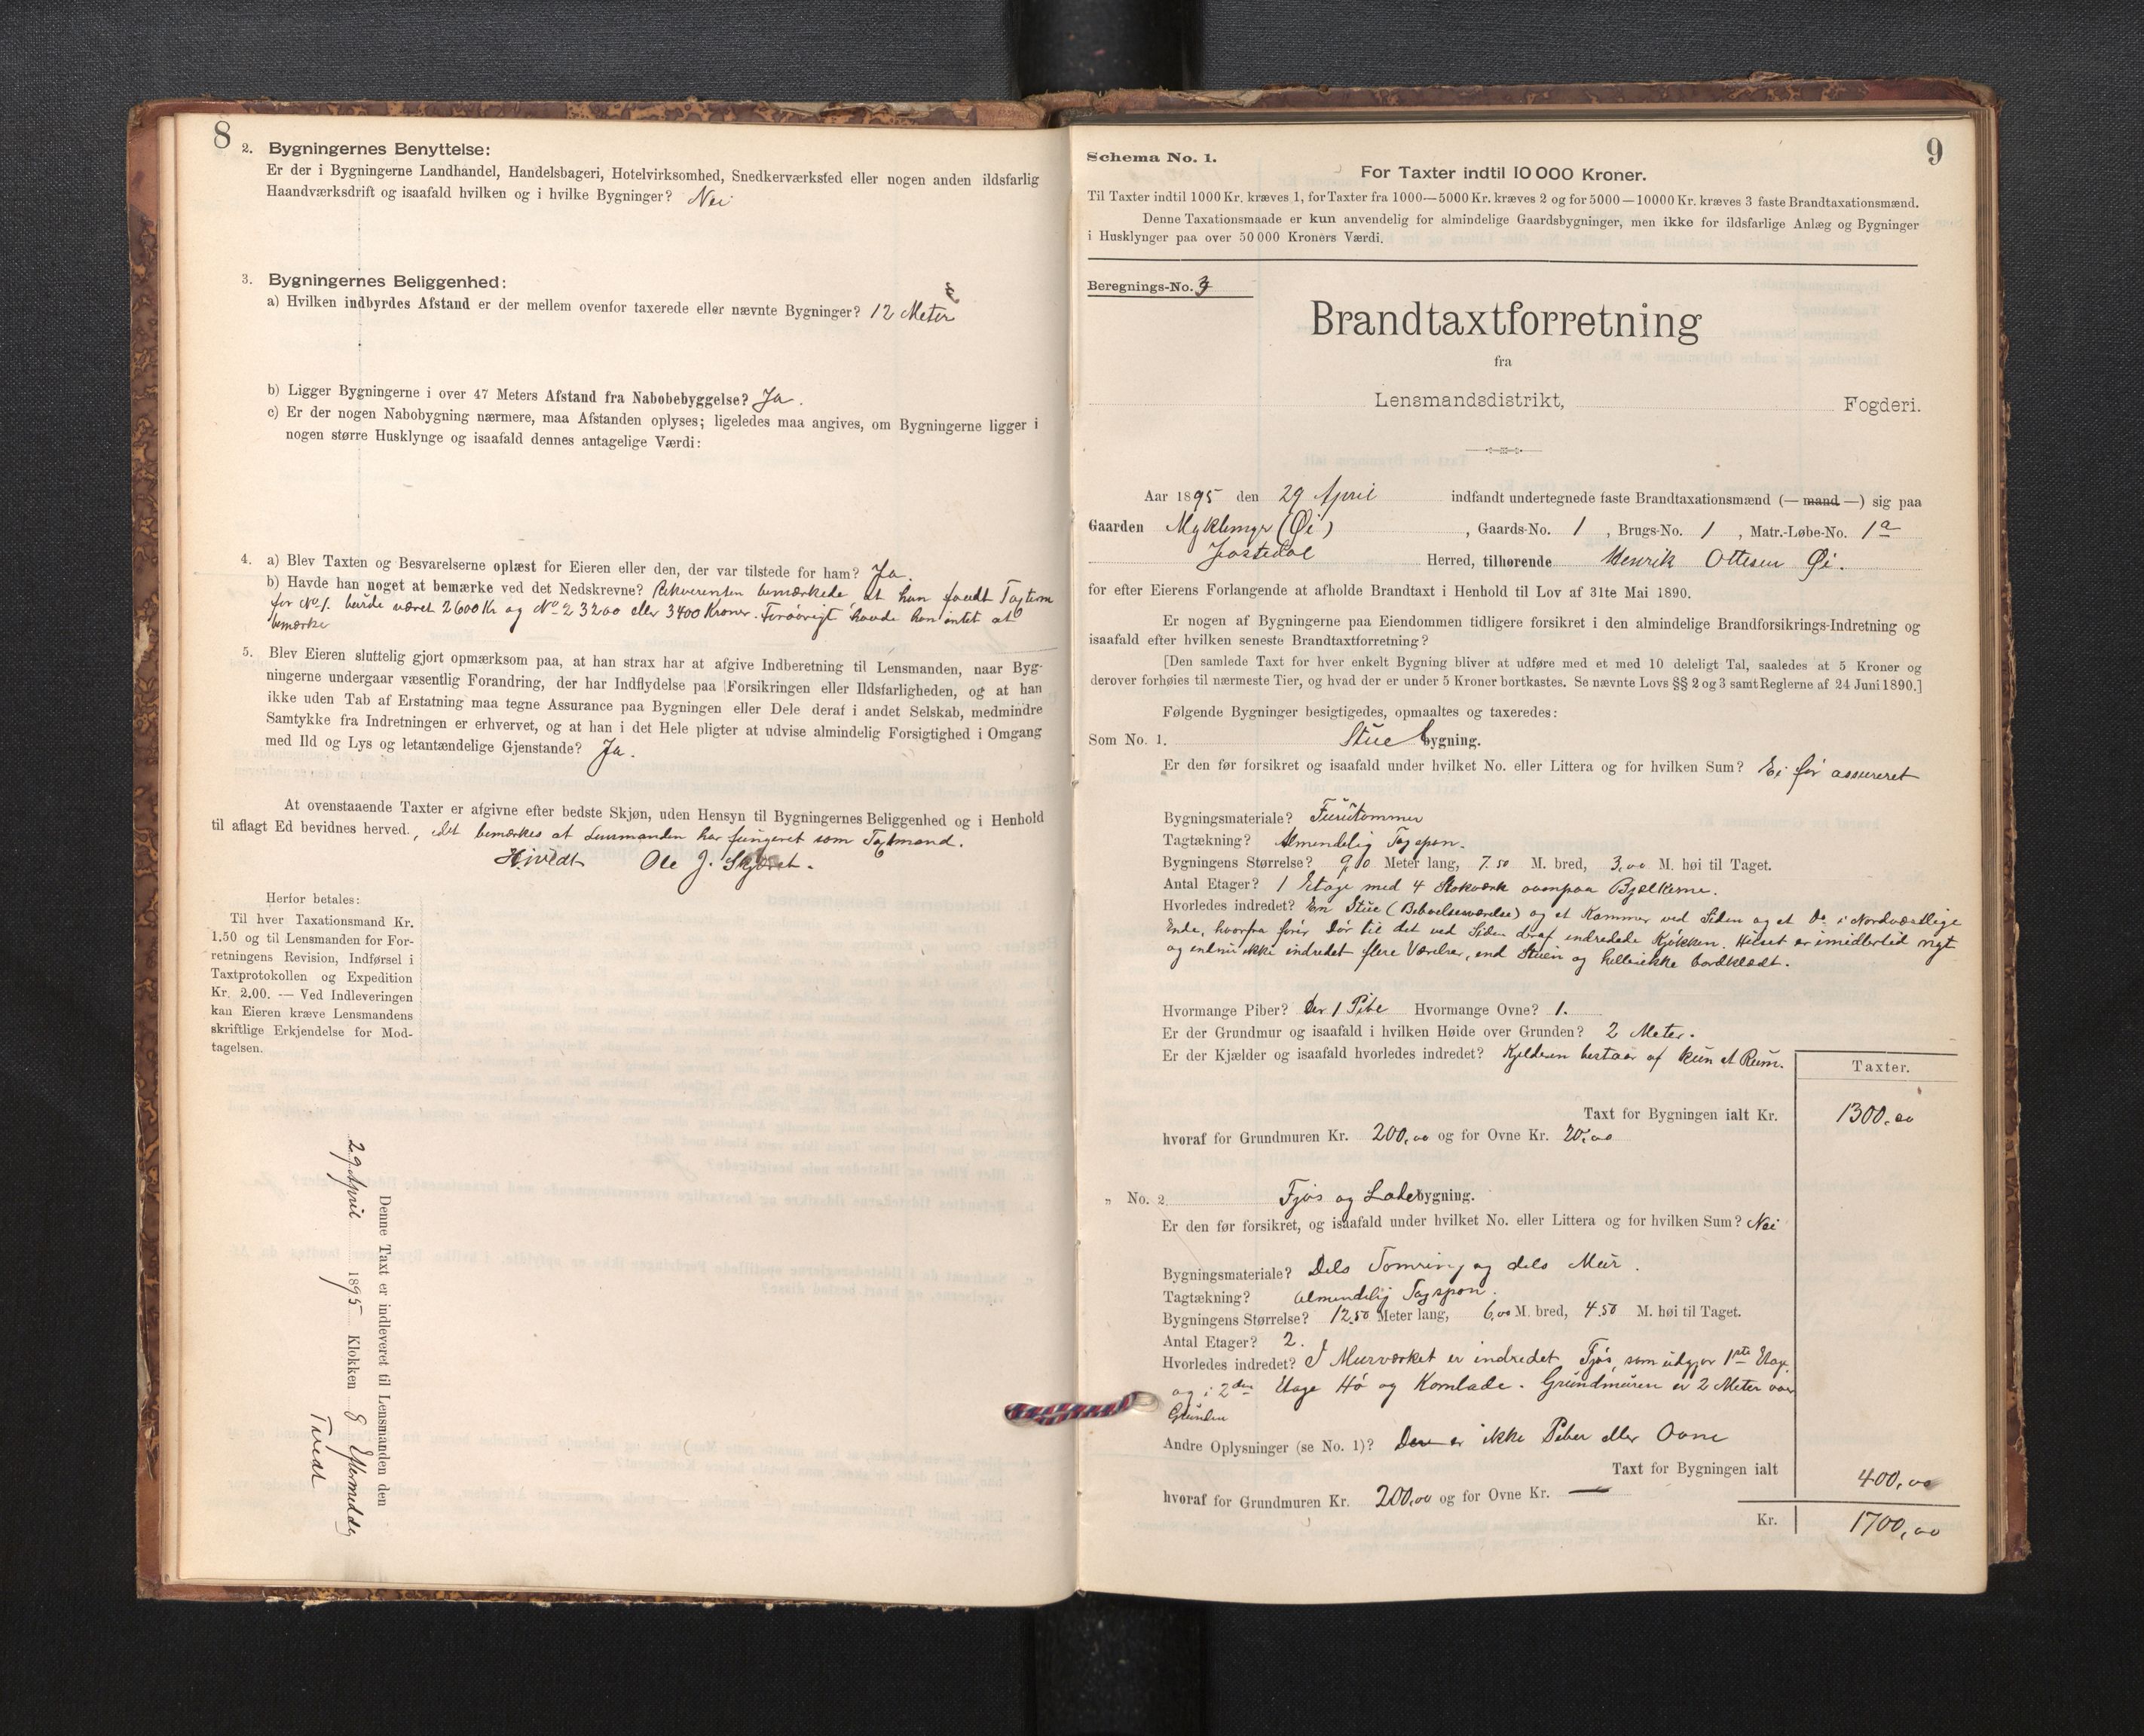 8
2. Bygningernes Benyttelse:
Er der i Bygningerne Landhandel, Handelsbageri, Hotelvirksomhed, Snedkerværksted eller nogen anden ildsfarlig
Haandværksdrift og isaafald hvilken og i hvilke Bygninger? Nei
3. Bygningernes Beliggenhed:
a) Hvilken indbyrdes Afstand er der mellem ovenfor taxerede eller nævnte Bygninger? 12 Meter
b) Ligger Bygningerne i over 47 Meters Afstand fra Nabobebyggelse? Ja.
c) Er der nogen Nabobygning nærmere, maa Afstanden oplyses; ligeledes maa angives, om Bygningerne ligger i
nogen større Husklynge og isaafald dennes antagelige Værdi:
4. a) Blev Taxten og Besvarelserne oplæst for Eieren eller den, der var tilstede for ham? Ja.
b) Havde han noget at bemærke ved det Nedskrevne? Rekverenten bemærkede at han fandt Taxten
for No 1. burde været 2600 Kr og No 2 3200 eller 3400 Kroner. Forøvrigt havde han intet at
bemærke
5. Blev Eieren sluttelig gjort opmærksom paa, at han strax har at afgive Indberetning til Lensmanden, naar Byg-
ningerne undergaar væsentlig Forandring, der har Indflydelse paa Forsikringen eller Ildsfarligheden, og at han
ikke uden Tab af Erstatning maa tegne Assurance paa Bygningen eller Dele deraf i andet Selskab, medmindre
Samtykke fra Indretningen er erhvervet, og at han i det Hele pligter at udvise almindelig Forsigtighed i Omgang
med Ild og Lys og letantændelige Gjenstande? Ja.
At ovenstaaende Taxter er afgivne efter bedste Skjøn, uden Hensyn til Bygningernes Beliggenhed og i Henhold
til aflagt Ed bevidnes herved, idet bemærkes at Lensmanden har fungeret som Taxmand.
Ole J.
Herfor betales:
Til hver Taxationsmand Kr.
1.50 og til Lensmanden for For-
retningens Revision, Indførsel i
Taxtprotokollen og Expedition
Kr. 2.00. — Ved Indleveringen
kan Eieren kræve Lensmandens
skriftlige Erkjendelse for Mod-
tagelsen.
Denne Taxt er indleveret til Lensmanden den
29 April 1895 Klokken 8 Eftermiddag
Tvedt
9
Schema No. 1.
For Taxter indtil 10 000 Kroner.
Til Taxter indtil 1000 Kr. kræves 1, for Taxter fra 1000—5000 Kr. kræves 2 og for 5000—10000 Kr. kræves 3 faste Brandtaxationsmænd.
Denne Taxationsmaade er kun anvendelig for almindelige Gaardsbygninger, men ikke for ildsfarlige Anlæg og Bygninger
i Husklynger paa over 50 000 Kroners Værdi.
Beregnings-No. 3
Brandtaxtforretning
fra
Lensmandsdistrikt, Fogderi.
Aar 1895 den 29 April indfandt undertegnede faste Brandtaxationsmænd (— mand —) sig paa
Gaarden (Øi), Gaards-No. 1, Brugs-No. 1, Matr.-Løbe-No. 1a
Jostedal Herred, tilhørende Henrik Ottesen Øi.
for efter Eierens Forlangende at afholde Brandtaxt i Henhold til Lov af 31te Mai 1890.
Er nogen af Bygningerne paa Eiendommen tidligere forsikret i den almindelige Brandforsikrings-Indretning og
isaafald efter hvilken seneste Brandtaxtforretning?
[Den samlede Taxt for hver enkelt Bygning bliver at udføre med et med 10 deleligt Tal, saaledes at 5 Kroner og
derover forhøies til nærmeste Tier, og hvad der er under 5 Kroner bortkastes. Se nævnte Lovs §§ 2 og 3 samt Reglerne af 24 Juni 1890.]
Følgende Bygninger besigtigedes, opmaaltes og taxeredes:
Som No. 1. Stuebygning.
Er den før forsikret og isaafald under hvilket No. eller Littera og for hvilken Sum? Ei før assureret
Bygningsmateriale? Furutømmer
Tagtækning? Almendelig Tagspon.
Bygningens Størrelse? 9,0 Meter lang, 7.50 M. bred, 3,00 M. høi til Taget.
Antal Etager? 1 Etage med 4 Stokværk ovenpaa Bjælkerne.
Hvorledes indredet? En Stue (Beboelsesværelse) og et Kammer ved Siden og et Do i Nordvæstlige
Ende, hvorfra fører Dør til det ved Siden deraf indredede Kjøkken. Huset er imidlertid nyt
og endnu ikke indredet flere Værelser, end Stuen og heller ikke bordklædt.
Hvormange Piber? Der 1 Pibe Hvormange Ovne? 1.
Er der Grundmur og isaafald i hvilken Høide over Grunden? 2 Meter.
Er der Kjælder og isaafald hvorledes indredet? Kjelderen bestaar af kun et Rum.
Taxter.
Taxt for Bygningen ialt Kr. 1300,00
hvoraf for Grundmuren Kr. 200,00 og for Ovne Kr. 20,00
„ No. 2 Fjøs og Ladebygning.
Er den før forsikret, og isaafald under hvilket No. eller Littera og for hvilken Sum? Nei
Bygningsmateriale? Dels Tømring og dels Mur.
Tagtækning? Almendelig Tagspon.
Bygningens Størrelse? 12,50 Meter lang, 6,00 M. bred, 4.50 M. høi til Taget.
Antal Etager? 2.
Hvorledes indredet? I Murværket er indredet Fjøs, som udgjør 1ste Etage,
og i 2den Etage Hø og Kornlade. Grundmuren er 2 Meter over
Grunden
Andre Oplysninger (se No. 1)? Der er ikke Piber eller Ovne
Taxt for Bygningen ialt 400,00
hvoraf for Grundmuren Kr. 200,00 og for Ovne Kr. —
Kr. 1700,00